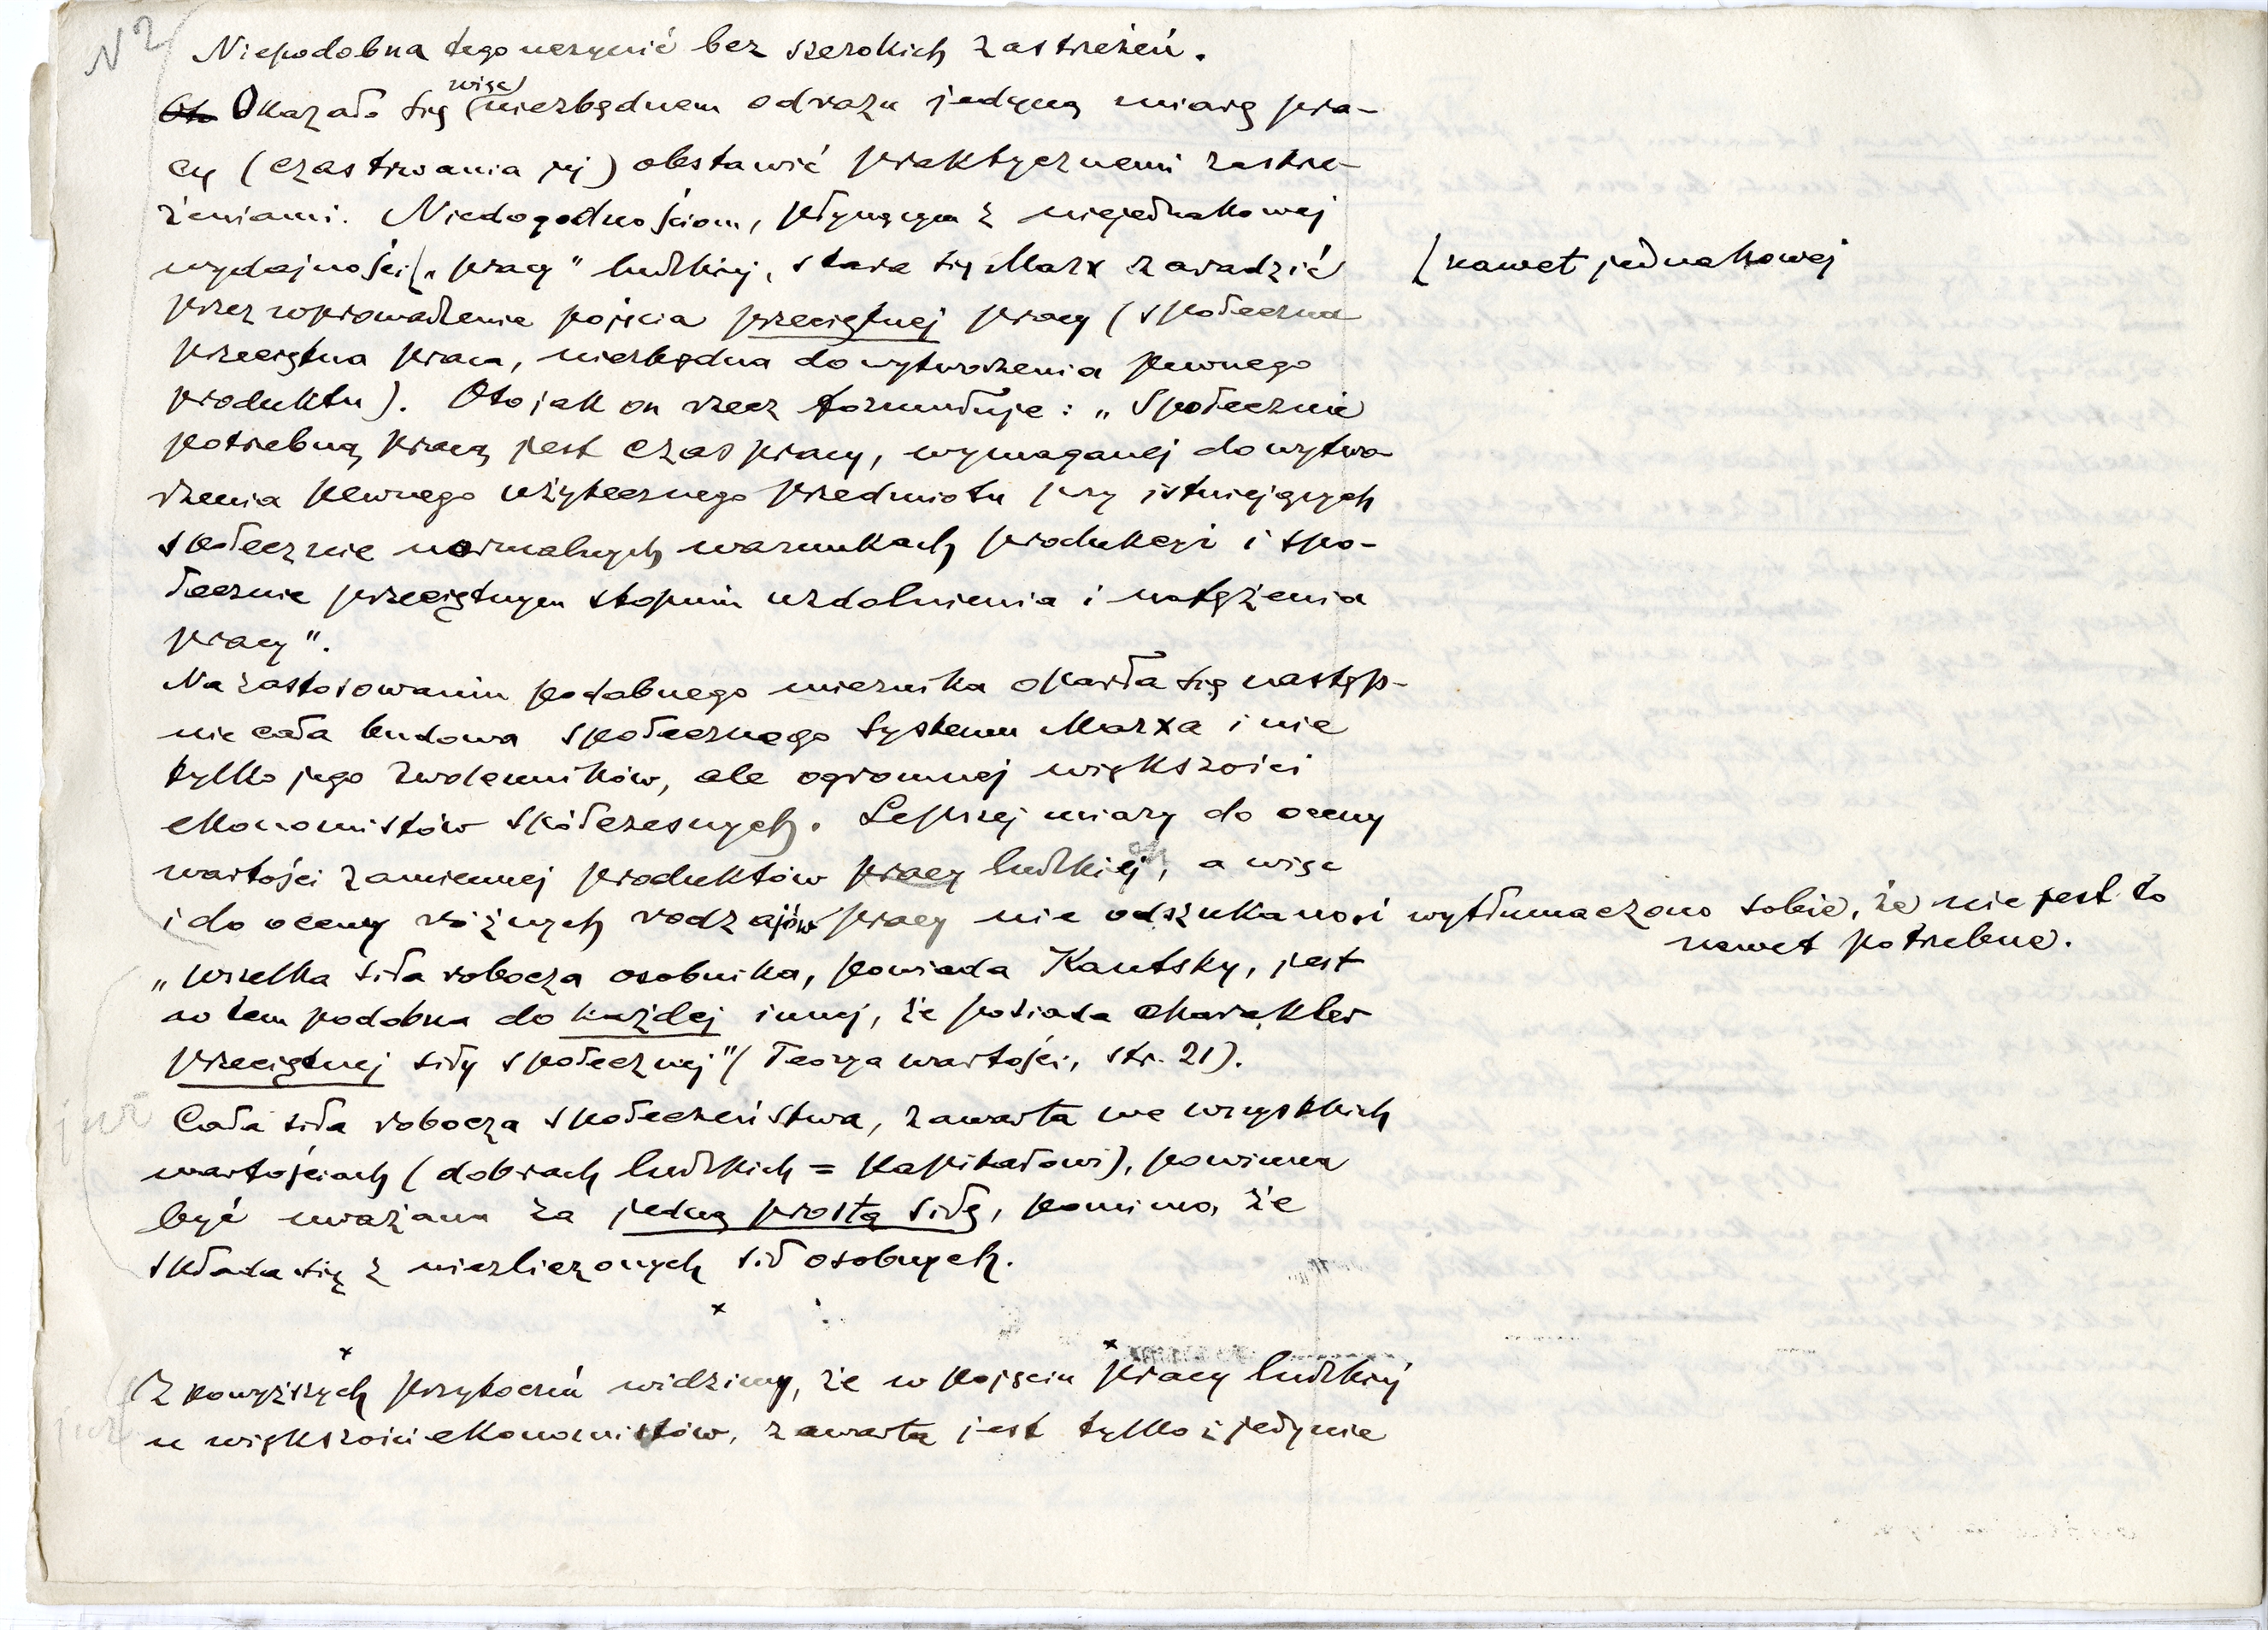 N 2
Niepodobna tego uczynić bez szerokich zastrzeżeń.
Oto Okazało się więc niezbędnem odrazu jedyną miarę pra-
cy (czas trwania jej) obstawić praktycznemi zastrze-
żeniami. Niedogodnościom, płynącym z niejednakowej
wydajności [„pracy" ludzkiej, stara się Marx zaradzić [nawet jednakowej
przez wprowadzenie pojęcia przeciętnej pracy (społeczna
przeciętna praca, niezbędna do wytworzenia pewnego
produktu). Oto jak on rzecz formułuje: „Społecznie
potrzebną pracą jest czas pracy, wymaganej do wytwo-
rzenia pewnego użytecznego przedmiotu przy istniejących
społecznie normalnych warunkach produkcyi i spo-
łecznie przeciętnym stopniu uzdolnienia i natężenia
pracy".
Na zastosowaniu podobnego miernika oparła się następ-
nie cała budowa społecznego systemu Marxa i nie
tylko jego zwolenników, ale ogromnej większości
ekonomistów spółczesnych. Lepszej miary do oceny
wartości zamiennej produktów pracy ludzkiej, a więc
i do oceny różnych rodzajów pracy nie odszukano i wytłumaczono sobie, że nie jest to
nawet potrzebne.
„Wszelka siła robocza osobnika, powiada Kautsky, jest
w tem podobna do każdej innej, że posiada charakter
przeciętnej siły społecznej" (Teorya wartości, str. 21).
Cała siła robocza społeczeństwa, zawarta we wszystkich
wartościach (dobrach ludzkich = kapitałowi), powinna
być uważana za jedną prostą siłę, pomimo, że
składa się z niezliczonych sił osobnych.
x
Z powyższych przytoczeń widzimy, że w pojęciu pracy ludzkiej
u większości ekonomistów, zawarta jest tylko i jedynie
już
już